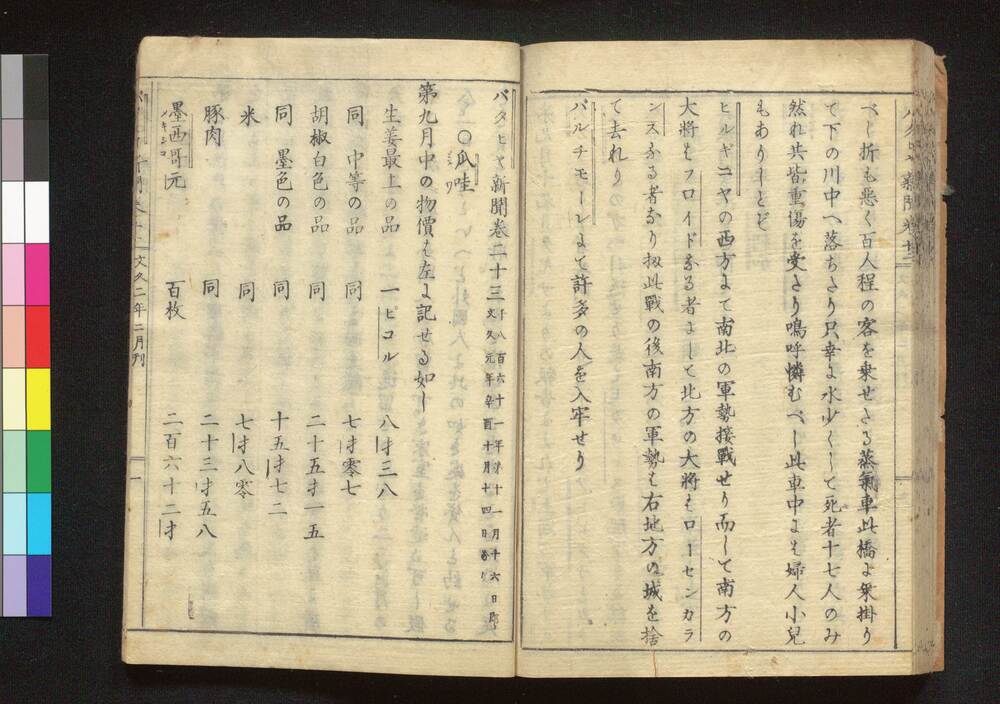 べし折も悪く百人程の客を乗せたる蒸氣車此橋に乗掛り
て下の川中へ落ちたり只幸に水少くして死者十七人のみ
然れ共皆重傷を受たり嗚呼憐むべし此車中には婦人小兒
もありしとぞ
ヒルギニヤの西方にて南北の軍勢接戰せり而して南方の
大將はフロイドなる者にして北方の大將はローセンカラ
ンスなる者なり扨此戰の後南方の軍勢は右地方の城を捨
て去れり
バルチモーレにて許多の人を入牢せり
バタヒヤ新聞卷二十三 千八百六十一年第十一月十六日 文久元年辛酉十月十四日
〇瓜哇
第九月中の物價は左に記せる如し
生姜最上の品 一ピコル 八才三八
同 中等の品 同 七才零七
胡椒白色の品 同 二十五才一五
同 墨色の品 同 十五才七二
米 同 七才八零
豚肉 同 二十三才五八
墨西哥元 百枚 二百六十二才
メキシコ
文久二年二月刊